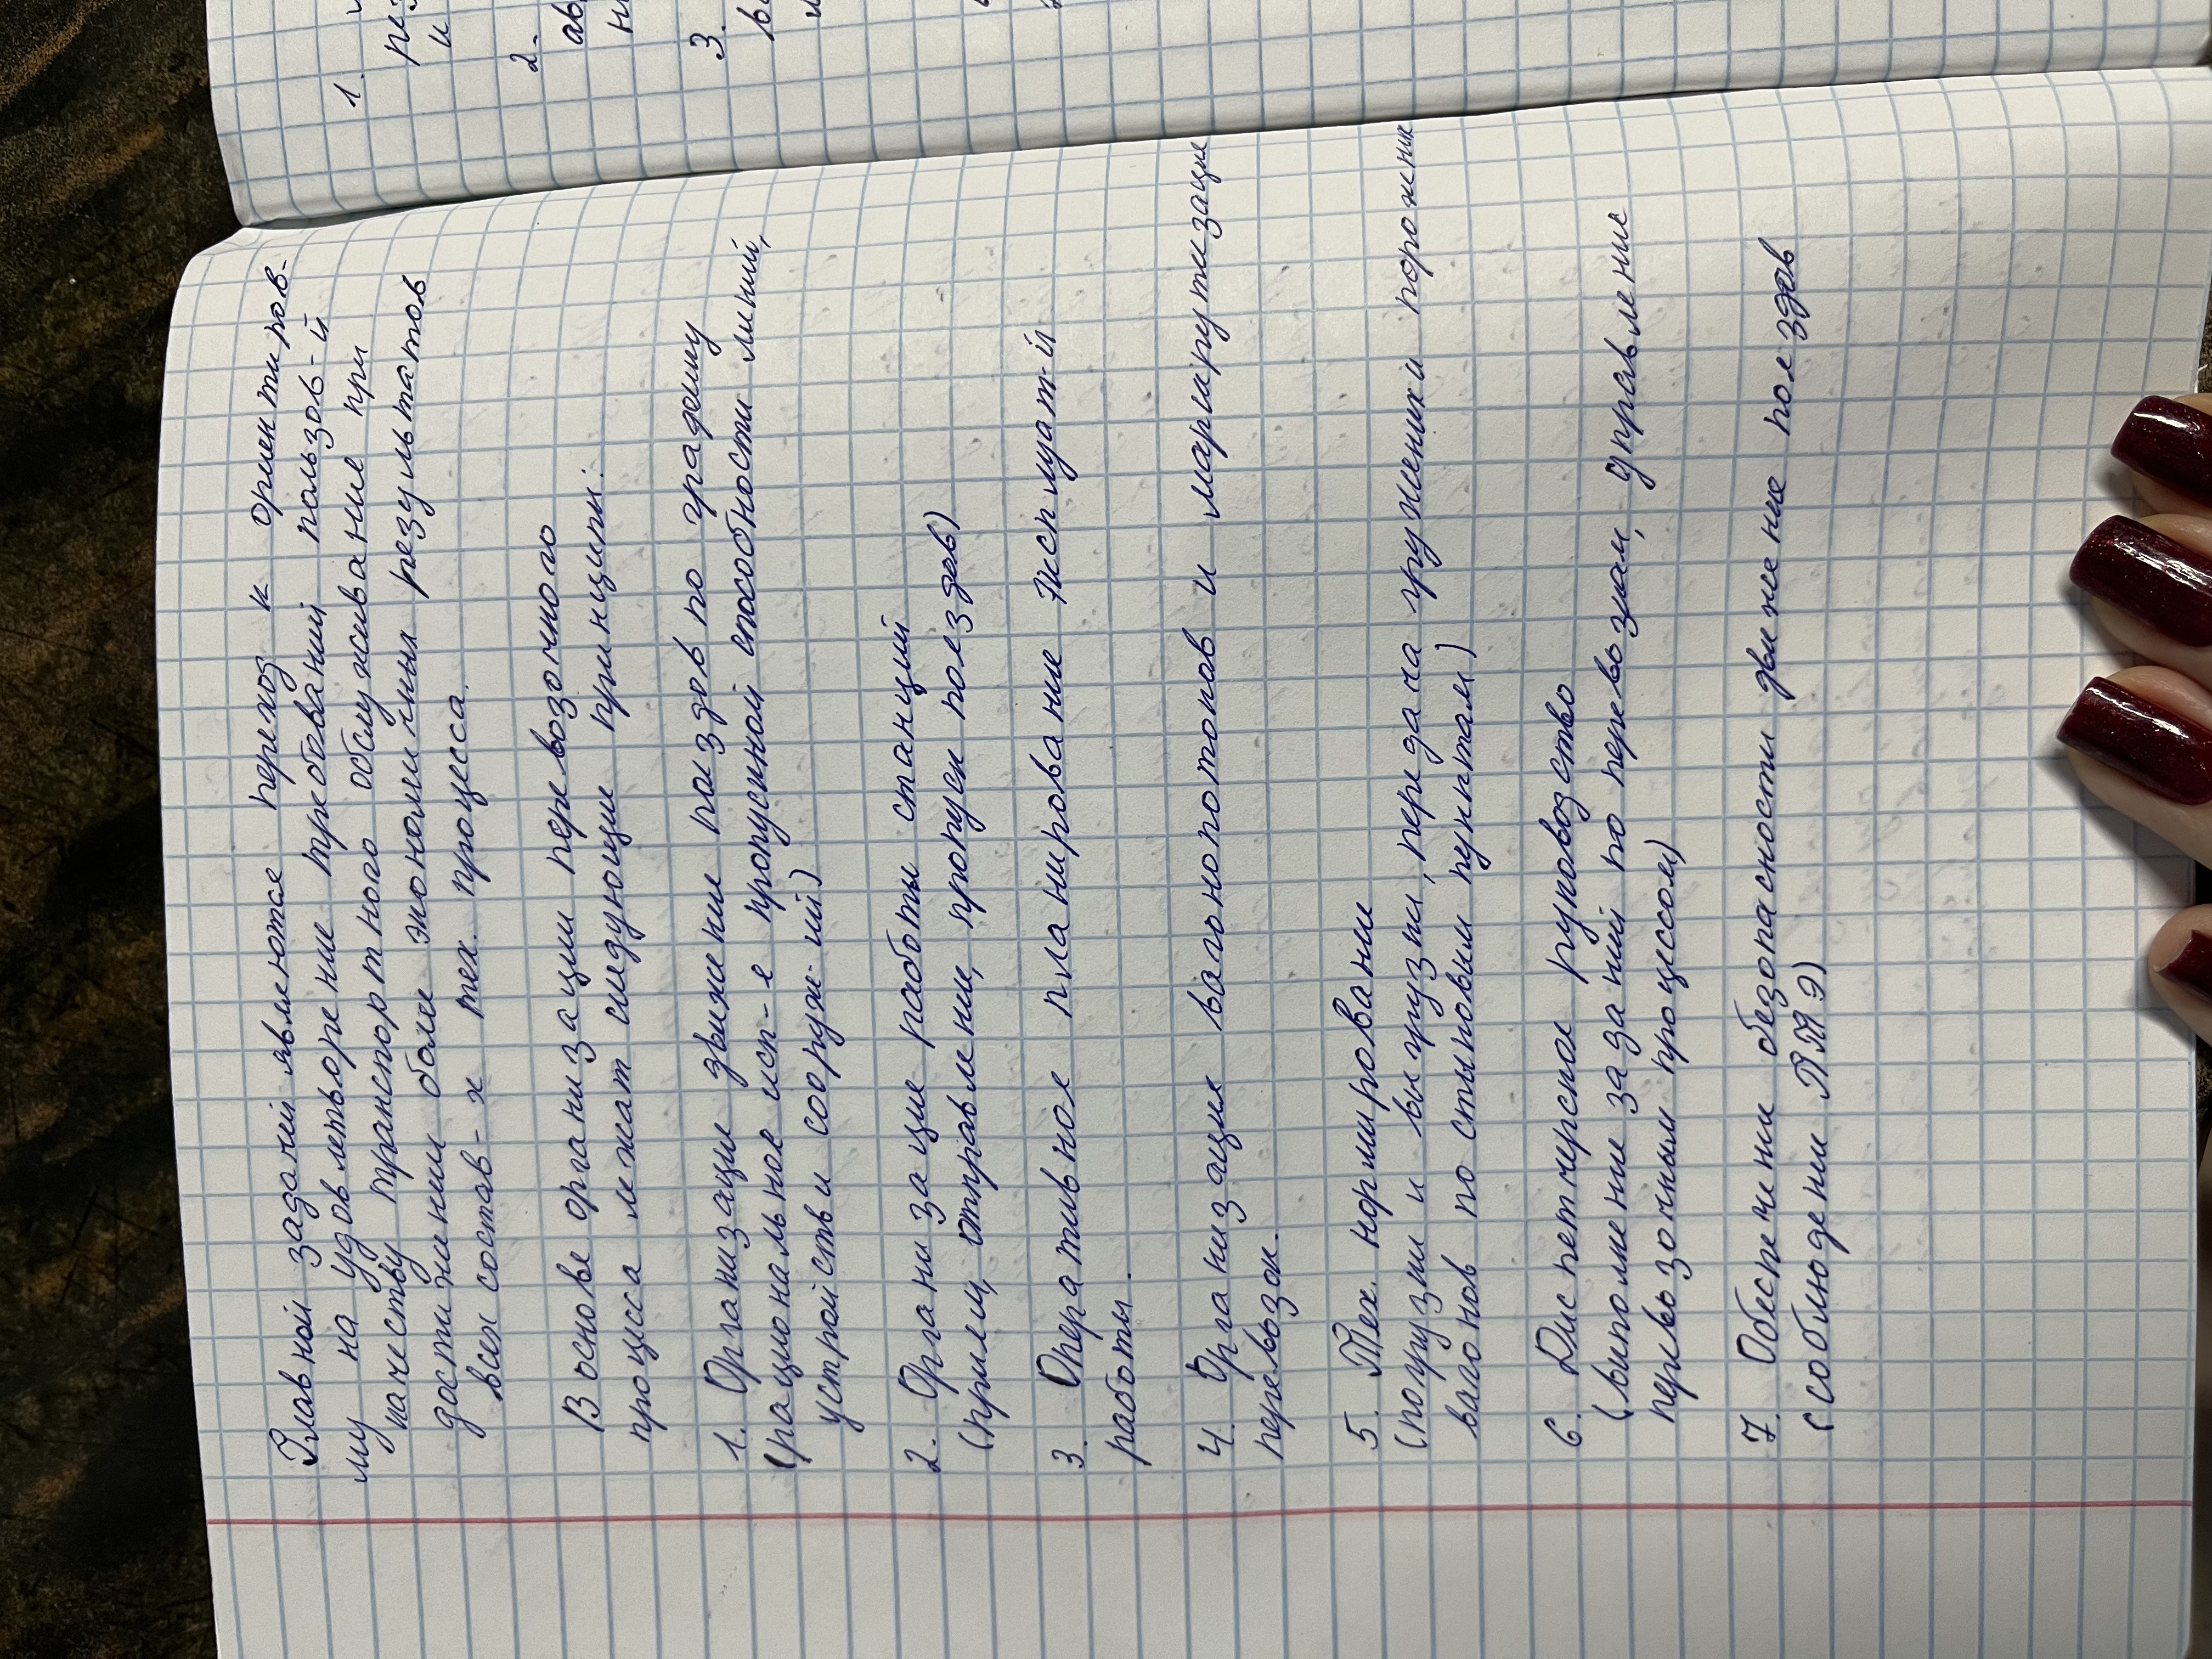 Главной задачей является переход к ориентиров-
му на удовлетворение требований пользов-й
качеству транспортного обслуживание при
достижении более экономичных результатов
всех состав-х тех. процесса.
В основе организации перевозочного
процесса лежат следующие принципы:
1. Организация движение поездов по градешу
(рациональное исп-е пропускной способности линий,
устройств и сооруж-ий)
2. Организация работы станций
(прием, отправление, пропуск поездов)
3. Оперативное планирование эксплуат-й
работы.
4. Организация вагонопотоков и маршрутизация
перевозок.
5. Тех. нормировани
(погрузки и выгрузки, передача груженых и порожних
вагонов по стыковым пунктам)
6. Диспетчерское руковозство
(выполнение заданий по перевозкам, управление
перевозочным процессом)
7. Обеспечении безопасности движение поездов
(соблюдении ПТЭ)
1.
2.
3.